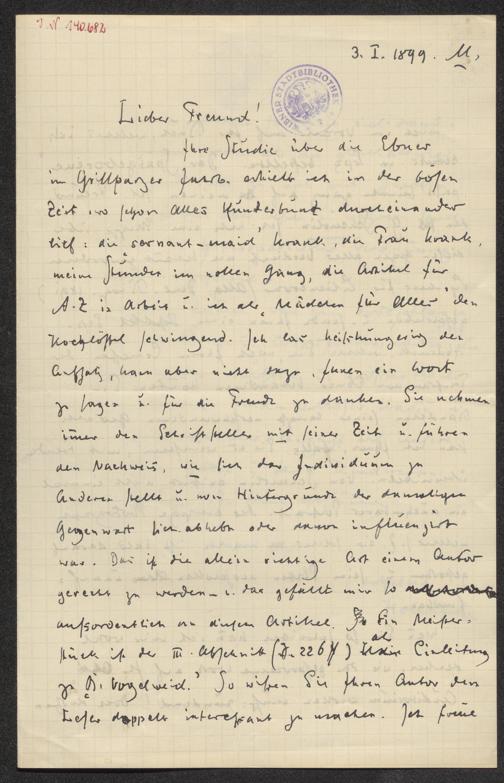 J. N. 140.682
3. I. 1899. M,
WIENER STADTBIBLIOTHEK
Lieber Freund!
Ihre Studie über die Ebner
im Grillparzer Jahrb. erhielt ich in der bösen
Zeit wo schon alles kunderbunt durcheinander
lief: die „servant-maid" krank, die Frau krank,
meine Stunden im vollen Gang, die Artikel für
A-Z in Arbeit u. ich als „Mädchen für Alles" den
Kochlöffel schwingend. Ich las heißhungrig den
Aufsatz, kam aber nicht dazu, Ihnen ein Wort
zu sagen u. für die Freude zu danken. Sie nehmen
immer den Schriftsteller mit seiner Zeit u. führen
den Nachweis, wie sich das Individuum zu
Anderen stellt u. vom Hintergrunde der damaligen
Gegenwart sich abhebt oder davon influenzirt
war. Das ist die allein richtige Art einem Autor
gerecht zu werden – u. das gefällt mir so
außerordentlich an diesem Artikel. Ein Meister-
stück ist der III. Abschnitt (S. 226 ff) als Einleitung
zu „B. Vogelweid." So wissen Sie Ihren Autor dem
Leser doppelt interessant zu machen. Ich freue